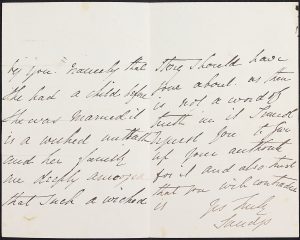 by you. Namely that
she had a child before
she was married it
is a wicked untruth
and her family
are deeply annoyed
that such a wicked
story should have
gone about us, there
is not a word of
truth in it I must
request you to give
up your authority
for it and also trust
that you will contradict
it
Yrs truly
Sandys